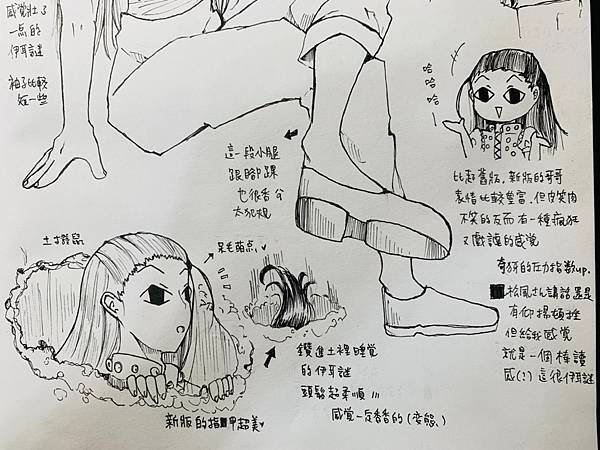 感覺壯了
一点的
伊耳謎
袖子比較
短一些
哈
哈
哈一
這一段小腿
跟腳踝
也很香分
太犯規
比起舊版,新版的哥哥
表情比較豐富,但皮笑肉
不笑的反而有一種瘋狂
又戲謔的感覺
奇犽的压力指数up.
松風さん講話還是
有仰揚頓挫
但給我感覺
就是一個棒讀
感(!)這很伊耳謎
土撥鼠
呆毛萌点、♥
鑽進土裡睡覺
的伊耳謎
頭髮超柔順 !!!
感覺一定香香的(变態、)
新版的指甲超美♥